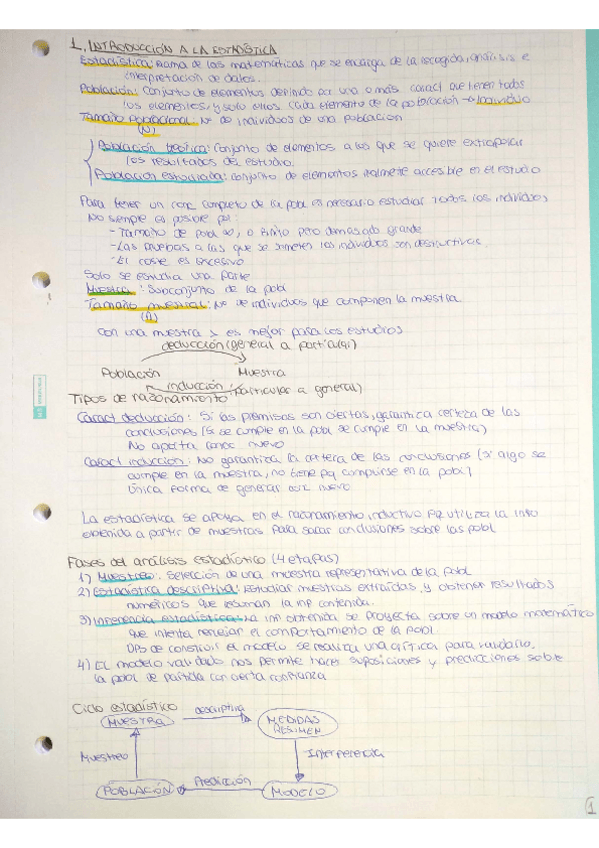 1. INTRODUCCIÓN A LA ESTADÍSTICA
Estadística: Rama de las matemáticas que se encarga de la recogida, análisis e
interpretación de datos.
Población: Conjunto de elementos definido por una o más caract que tienen todos
los elementos, y solo ellos. Cada elemento de la población → Individuo
Tamaño Poblacional: Nº de individuos de una población
(N)
Población teórica: Conjunto de elementos a los que se quiere extrapolar
los resultados del estudio.
Población estudiada: conjunto de elementos realmente accesible en el estudio
Para tener un conc completo de la pobl es necesario estudiar todos los individuos
No siempre es posible por:
- Tamaño de pobl ∞, o finito pero demasiado grande
- Las pruebas a las que se someten los individuos son destructivas.
- El coste es excesivo
Solo se estudia una parte
Muestra: Subconjunto de la pobl
Tamaño muestral: Nº de individuos que componen la muestra
(n)
Con una muestra es mejor para los estudios
deducción (general a particular)
Población Muestra
inducción (particular a general)
Tipos de razonamiento
Caract deducción: Si las premisas son ciertas, garantiza certeza de las
conclusiones (si se cumple en la pobl se cumple en la muestra)
No aporta conoc nuevo
Caract inducción: No garantiza la certeza de las conclusiones (si algo se
cumple en la muestra, no tiene pq cumplirse en la pobl)
Única forma de generar conc nuevo
La estadística se apoya en el razonamiento inductivo pq utiliza la info
obtenida a partir de muestras para sacar conclusiones sobre las pobl
Fases del análisis estadístico (4 etapas)
1) Muestreo: Selección de una muestra representativa de la pobl
2) Estadística descriptiva: Estudiar muestras extraídas, y obtener resultados
numéricos que resuman la inf contenida.
3) Inferencia estadística: La inf obtenida se proyecta sobre un modelo matemático
que intenta reflejar el comportamiento de la pobl
Dps de construir el modelo se realiza una crítica para validarlo.
4) El modelo validado nos permite hacer suposiciones y predicciones sobre
la pobl de partida con cierta confianza
Ciclo estadístico
descriptiva
MUESTRA MEDIDAS
RESUMEN
Muestreo Interferencia
Predicción
POBLACIÓN MODELO
1